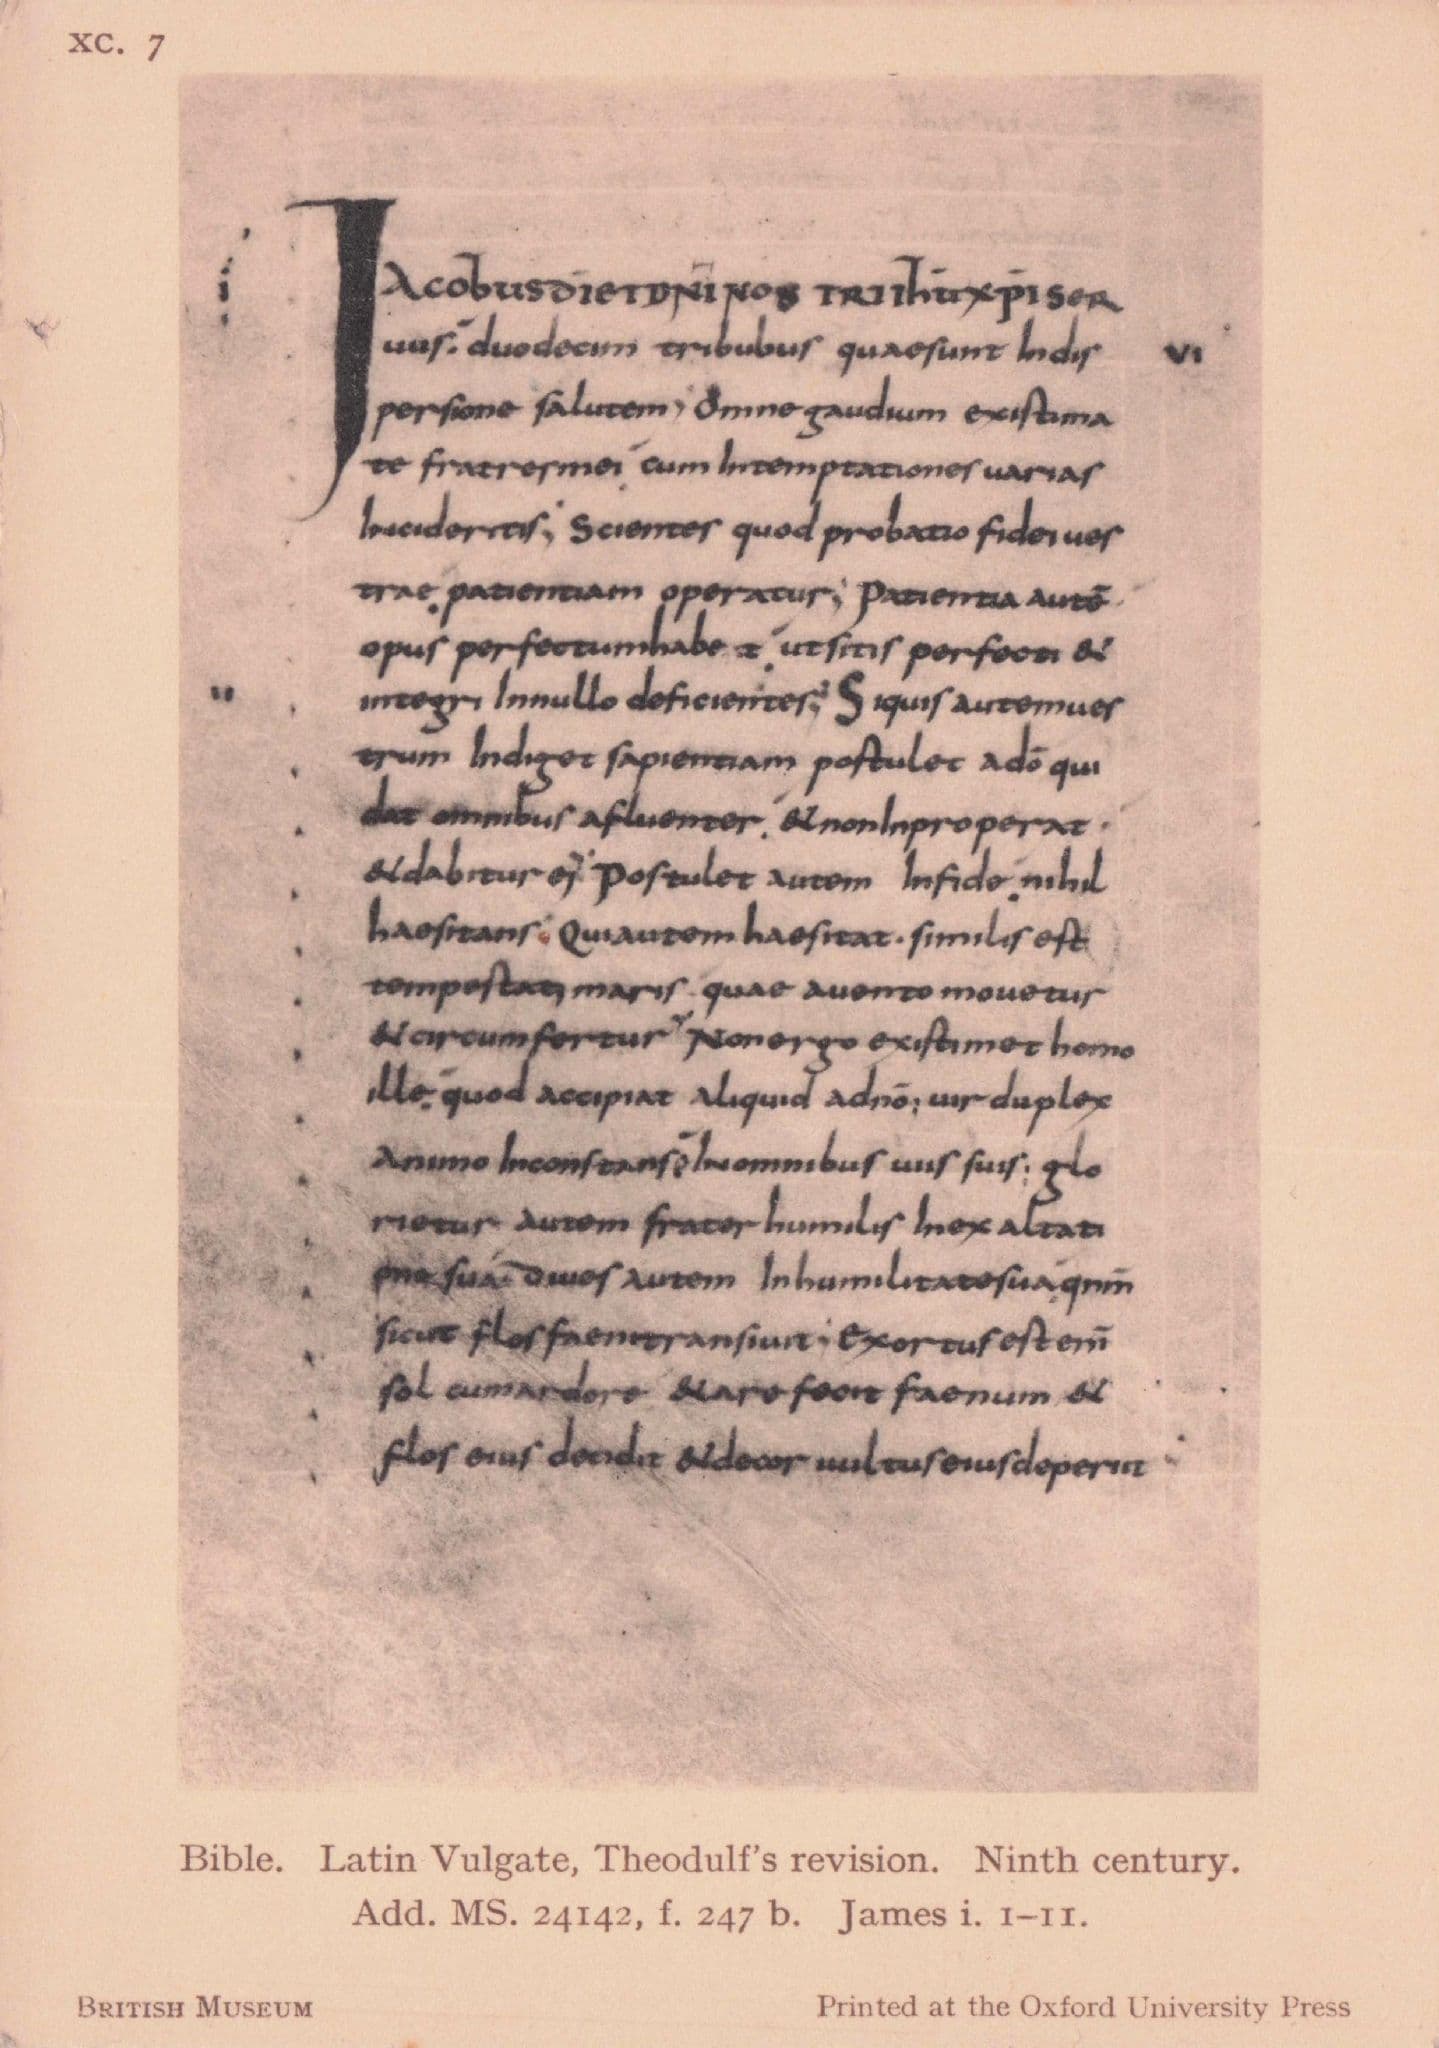 XC. 7
Jacobus dī et dn̄i nos trī ihū xp̄i ser
uus. duodecim tribubus quae sunt In dis
persione salutem; Omne gaudium existima
te fratres mei cum In temptationes uarias
Incideritis; Scientes quod probatio fidei ues
trae patientiam operatur; Patientia autē
opus perfectum habe t ut sitis perfecti &
integri In nullo deficientes; Si quis autem ues
trum Indiget sapientiam postulet a dō qui
dat omnibus afluenter. & non Inproperat.
& dabitur ei; Postulet autem In fide nihil
haesitans; Qui autem haesitat. similis est
tempestati maris quae a uento mouetur
& circumfertur; Non ergo existimet homo
ille. quod accipiat aliquid a dn̄o; uir duplex
Animo Inconstans In omnibus uiis suis; glo
rietur autem frater humilis In exaltati
one suā. diues autem In humilitate sua. qn̄m
sicut flos faeni transiuit; Exortus est enī
sol cum ardore & arefecit faenum &
flos eius decidit & decor uultus eius deperiit
i
VI
II
Bible. Latin Vulgate, Theodulf's revision. Ninth century.
Add. MS. 24142, f. 247 b. James i. 1–11.
British Museum
Printed at the Oxford University Press